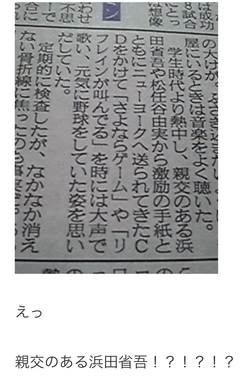 は成功
8試合
想像
ン
わせ
不思
屋にいるときは音楽をよく聴いた。
学生時代より熱中し、親交のある浜
田省吾や松任谷由実から激励の手紙と
ともにニューヨークへ送られてきたC
Dをかけて「さよならゲーム」や「リ
フレインが叫んでる」を時には大声で
歌い、元気に野球をしていた姿を思い
だしていた。
定期的に検査したが、なかなか消え
ない骨折線に焦ったのも事実
えっ
親交のある浜田省吾！？！？！？